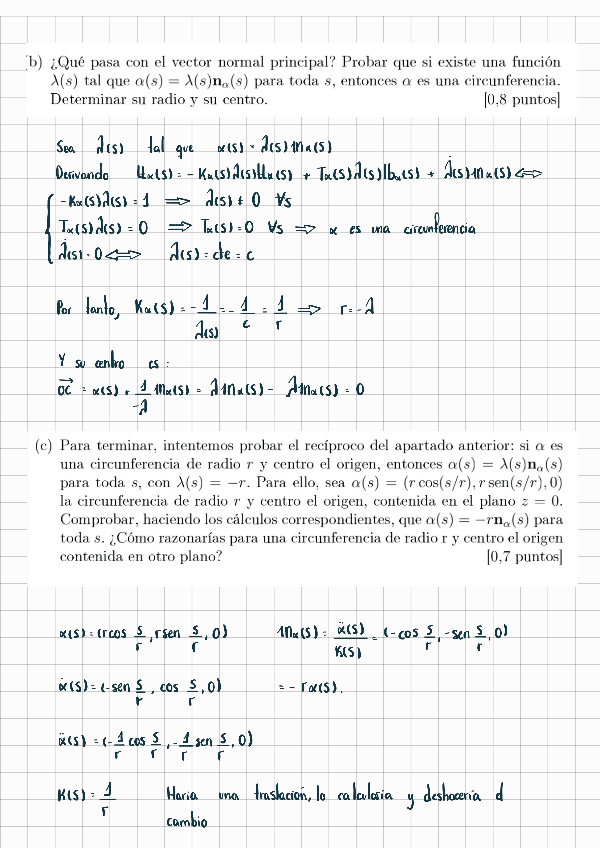 b) ¿Qué pasa con el vector normal principal? Probar que si existe una función
λ(s) tal que α(s) = λ(s)n_α(s) para toda s, entonces α es una circunferencia.
Determinar su radio y su centro. [0,8 puntos]
Sea λ(s) tal que α(s) = λ(s)n_α(s)
Derivando t_α(s) = -K_α(s)λ(s)t_α(s) + T_α(s)λ(s)b_α(s) + λ̇(s)n_α(s) ⟺
-K_α(s)λ(s) = 1 ⟹ λ(s) ≠ 0 ∀s
T_α(s)λ(s) = 0 ⟹ T_α(s) = 0 ∀s ⟹ α es una circunferencia
λ̇(s) = 0 ⟺ λ(s) = cte = c
Por tanto, K_α(s) = -1/λ(s) = -1/c = 1/r ⟹ r = -λ
Y su centro es:
OC = α(s) + 1/-λ n_α(s) = λn_α(s) - λn_α(s) = 0
(c) Para terminar, intentemos probar el recíproco del apartado anterior: si α es
una circunferencia de radio r y centro el origen, entonces α(s) = λ(s)n_α(s)
para toda s, con λ(s) = −r. Para ello, sea α(s) = (r cos(s/r), r sen(s/r), 0)
la circunferencia de radio r y centro el origen, contenida en el plano z = 0.
Comprobar, haciendo los cálculos correspondientes, que α(s) = −rn_α(s) para
toda s. ¿Cómo razonarías para una circunferencia de radio r y centro el origen
contenida en otro plano? [0,7 puntos]
α(s) = (r cos s/r, r sen s/r, 0) n_α(s) = α̈(s)/K(s) = (-cos s/r, -sen s/r, 0)
α̇(s) = (-sen s/r, cos s/r, 0) = -rα(s).
α̈(s) = (-1/r cos s/r, -1/r sen s/r, 0)
K(s) = 1/r Haria una traslación, lo calcularia y desharia el
cambio